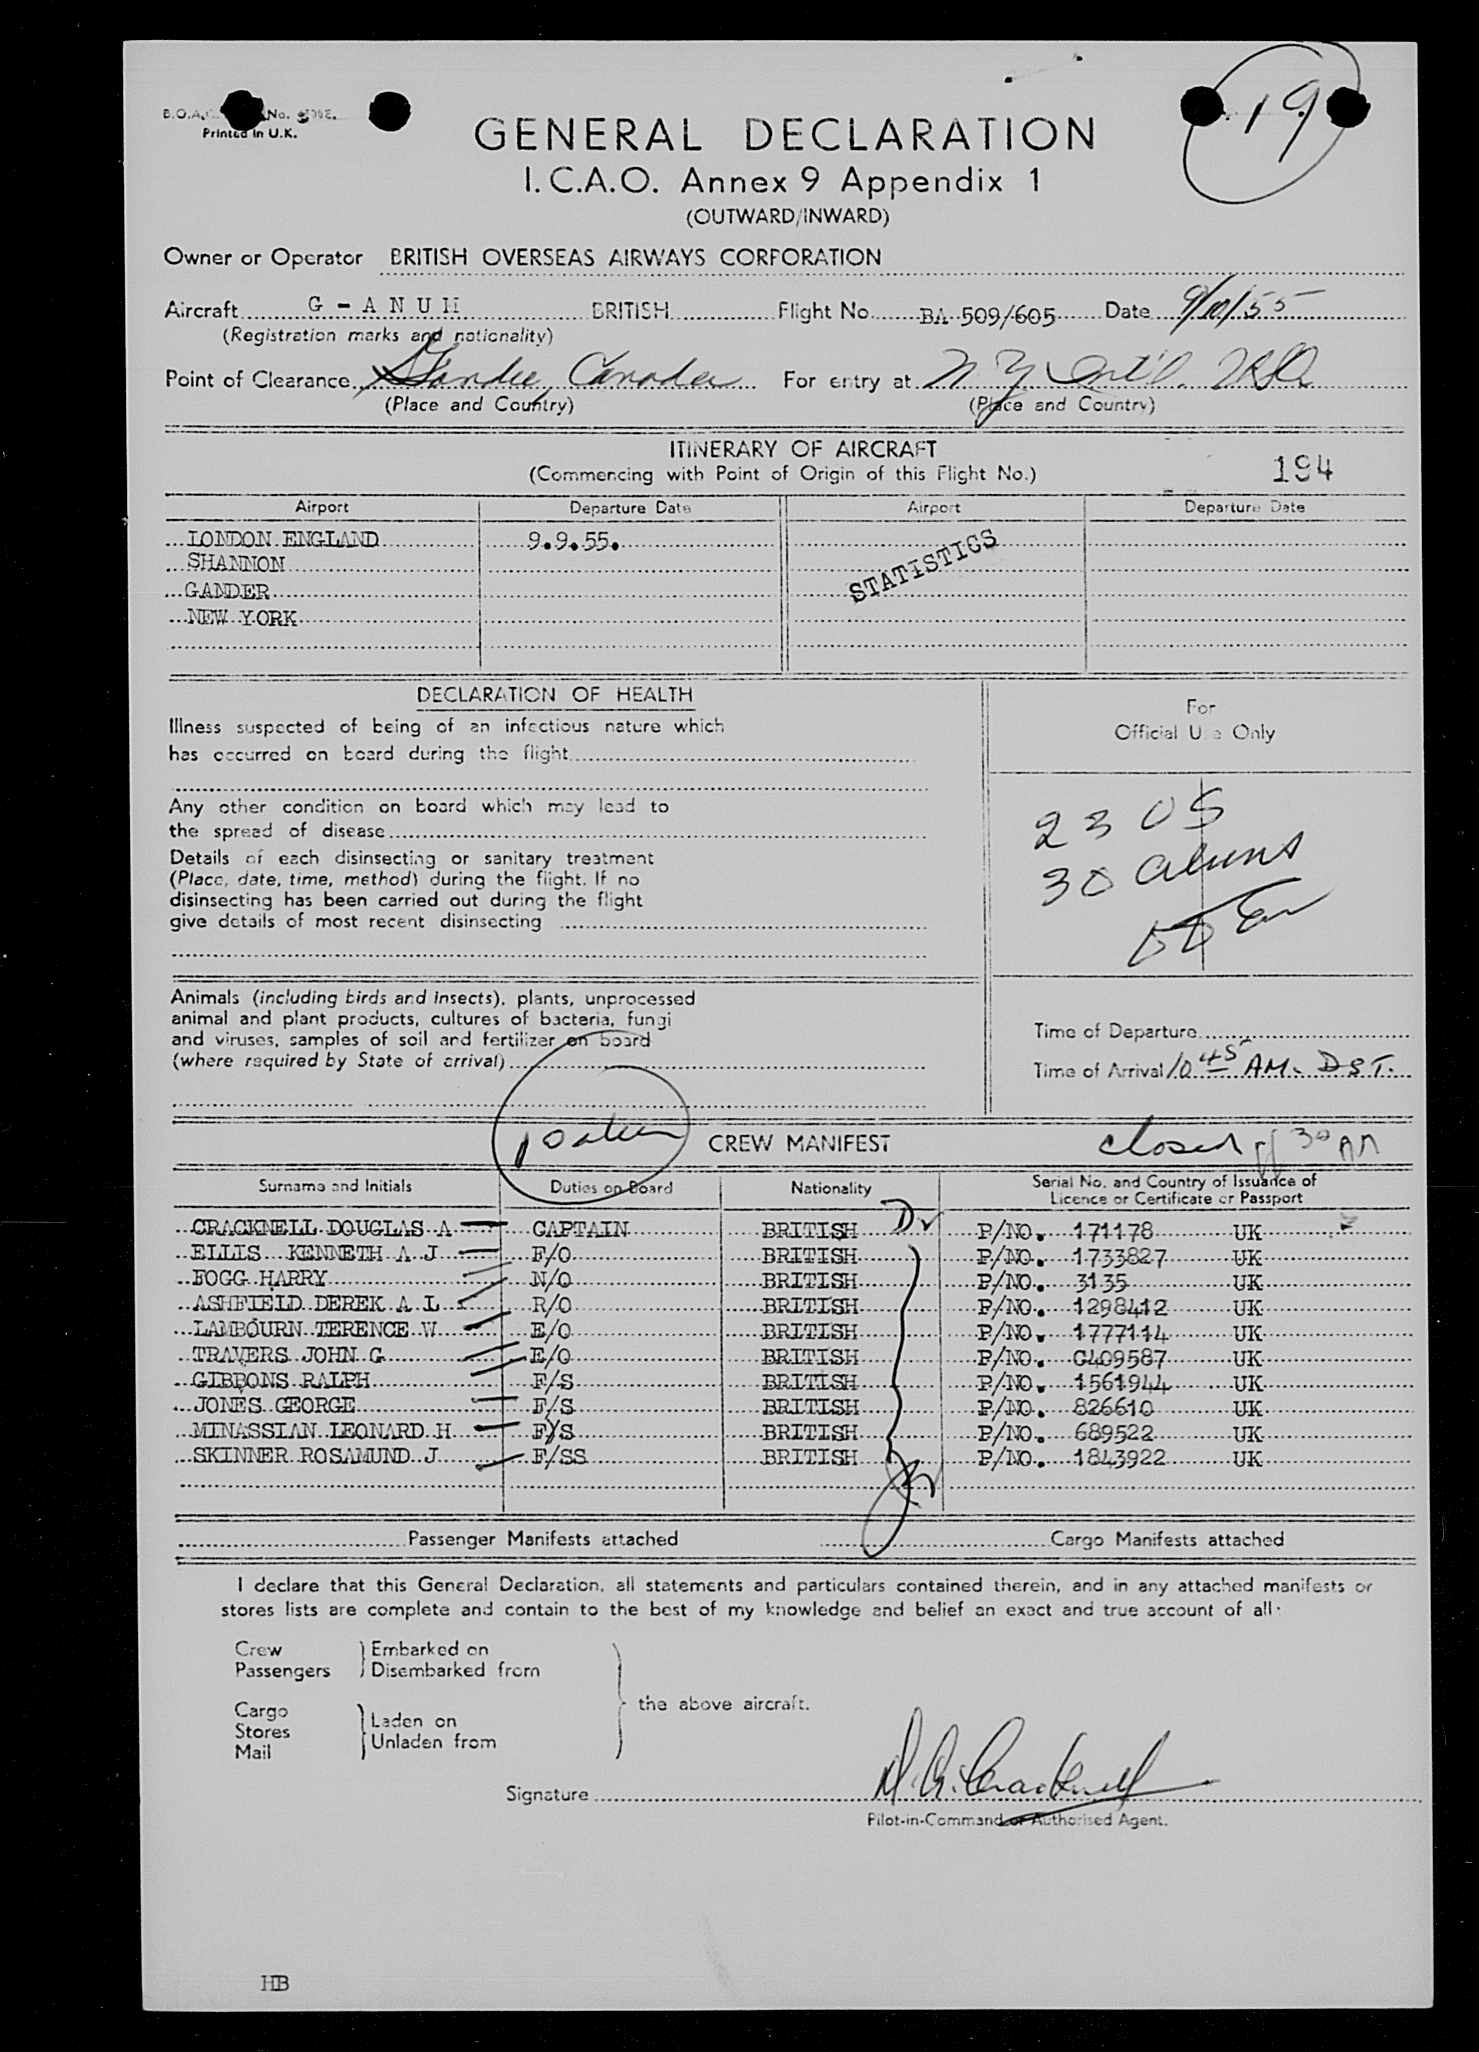 Printed in U.K.
19
GENERAL DECLARATION
I.C.A.O. Annex 9 Appendix 1
(OUTWARD/INWARD)
Owner or Operator BRITISH OVERSEAS AIRWAYS CORPORATION
Aircraft G - A N U H BRITISH Flight No. BA 509/605 Date 9/10/55
(Registration marks and nationality)
Point of Clearance Gander, Canada For entry at N Y Int'l. USA
(Place and Country) (Place and Country)
ITINERARY OF AIRCRAFT
(Commencing with Point of Origin of this Flight No.) 194
Airport Departure Date Airport Departure Date
LONDON ENGLAND 9.9.55.
SHANNON
STATISTICS
GANDER
NEW YORK
DECLARATION OF HEALTH
Illness suspected of being of an infectious nature which
has occurred on board during the flight
Any other condition on board which may lead to
the spread of disease
Details of each disinsecting or sanitary treatment
(Place, date, time, method) during the flight. If no
disinsecting has been carried out during the flight
give details of most recent disinsecting
For
Official Use Only
23 US
30 aliens
Animals (including birds and insects), plants, unprocessed
animal and plant products, cultures of bacteria, fungi
and viruses, samples of soil and fertilizer on board
(where required by State of arrival)
Time of Departure
Time of Arrival 10 45 AM. DST.
10 alien CREW MANIFEST closed 30 AM
Surname and Initials Duties on Board Nationality Serial No. and Country of Issuance of
Licence or Certificate or Passport
CRACKNELL DOUGLAS A CAPTAIN BRITISH P/NO. 171178 UK
ELLIS KENNETH A J F/O BRITISH P/NO. 1733827 UK
FOGG HARRY N/O BRITISH P/NO. 3135 UK
ASHFIELD DEREK A L R/O BRITISH P/NO. 1298412 UK
LAMBOURN TERENCE W E/O BRITISH P/NO. 1777114 UK
TRAVERS JOHN G E/O BRITISH P/NO. C409587 UK
GIBBONS RALPH F/S BRITISH P/NO. 1561944 UK
JONES GEORGE F/S BRITISH P/NO. 826610 UK
MINASSIAN LEONARD H F/S BRITISH P/NO. 689522 UK
SKINNER ROSAMUND J F/SS BRITISH P/NO. 1843922 UK
Passenger Manifests attached Cargo Manifests attached
I declare that this General Declaration, all statements and particulars contained therein, and in any attached manifests or
stores lists are complete and contain to the best of my knowledge and belief an exact and true account of all·
Crew Embarked on
Passengers Disembarked from
the above aircraft.
Cargo
Stores Laden on
Mail Unladen from
Signature D. A. Cracknell
Pilot-in-Command or Authorised Agent.
HB